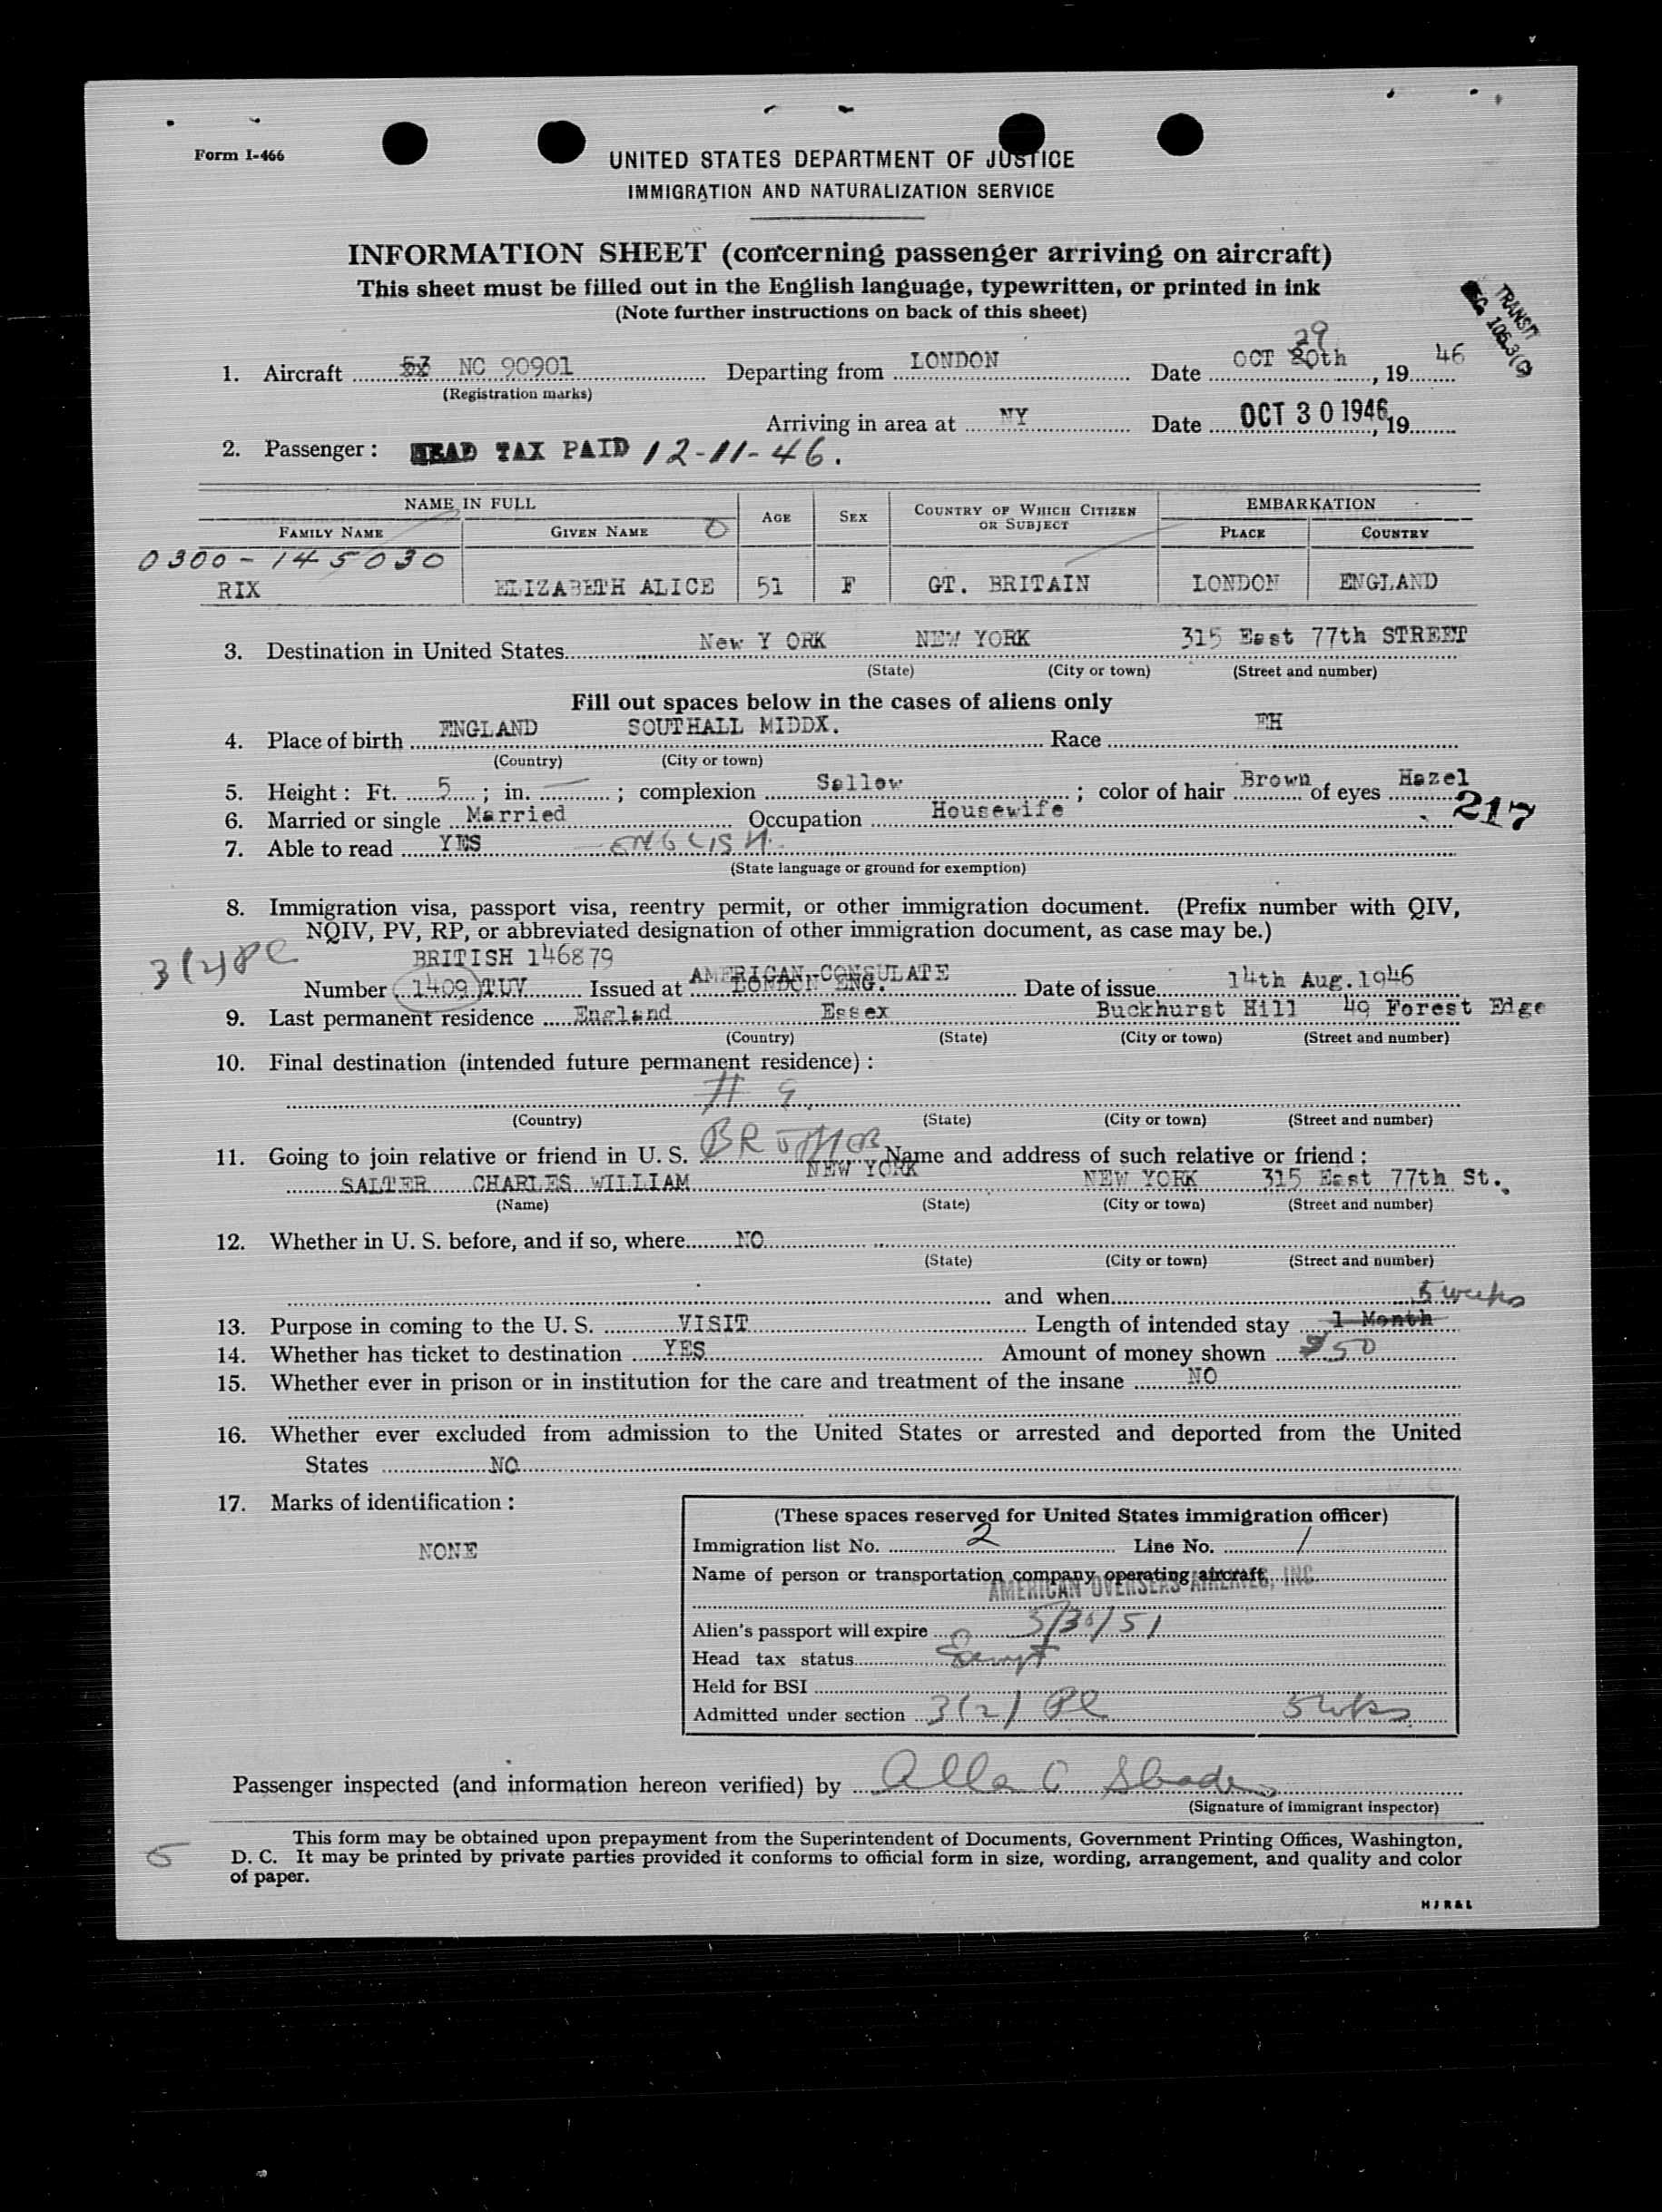 Form I-466
UNITED STATES DEPARTMENT OF JUSTICE
IMMIGRATION AND NATURALIZATION SERVICE
INFORMATION SHEET (concerning passenger arriving on aircraft)
This sheet must be filled out in the English language, typewritten, or printed in ink
(Note further instructions on back of this sheet)
TRANSIT
29
1. Aircraft NC 90901 Departing from LONDON Date OCT 30th, 19 46
(Registration marks)
Arriving in area at NY Date OCT 30 1946, 19
2. Passenger: HEAD TAX PAID 12-11-46.
NAME IN FULL AGE SEX COUNTRY OF WHICH CITIZEN OR SUBJECT EMBARKATION
FAMILY NAME GIVEN NAME PLACE COUNTRY
0300-145030
RIX ELIZABETH ALICE 51 F GT. BRITAIN LONDON ENGLAND
3. Destination in United States New Y ORK NEW YORK 315 East 77th STREET
(State) (City or town) (Street and number)
Fill out spaces below in the cases of aliens only
4. Place of birth ENGLAND SOUTHALL MIDDX. Race
(Country) (City or town)
5. Height: Ft. 5; in. —; complexion Sallow; color of hair Brown of eyes Hazel
6. Married or single Married Occupation Housewife 217
7. Able to read YES ENGLISH.
(State language or ground for exemption)
8. Immigration visa, passport visa, reentry permit, or other immigration document. (Prefix number with QIV,
NQIV, PV, RP, or abbreviated designation of other immigration document, as case may be.)
3(2) PL BRITISH 146879
Number 1409 TUV Issued at AMERICAN CONSULATE LONDON ENG. Date of issue 14th Aug. 1946
9. Last permanent residence England Essex Buckhurst Hill 49 Forest Edge
(Country) (State) (City or town) (Street and number)
10. Final destination (intended future permanent residence):
# 9
(Country) (State) (City or town) (Street and number)
11. Going to join relative or friend in U. S. BROTHER Name and address of such relative or friend:
SALTER CHARLES WILLIAM NEW YORK NEW YORK 315 East 77th St.
(Name) (State) (City or town) (Street and number)
12. Whether in U. S. before, and if so, where NO
(State) (City or town) (Street and number)
and when 5 weeks
13. Purpose in coming to the U. S. VISIT Length of intended stay 1 Month
14. Whether has ticket to destination YES Amount of money shown $50
15. Whether ever in prison or in institution for the care and treatment of the insane NO
16. Whether ever excluded from admission to the United States or arrested and deported from the United
States NO
17. Marks of identification:
NONE
(These spaces reserved for United States immigration officer)
Immigration list No. 2 Line No. 1
Name of person or transportation company operating aircraft
AMERICAN OVERSEAS AIRLINES, INC.
Alien's passport will expire 5/30/51
Head tax status Exempt
Held for BSI
Admitted under section 3(2) PL 5 wks
Passenger inspected (and information hereon verified) by
(Signature of immigrant inspector)
This form may be obtained upon prepayment from the Superintendent of Documents, Government Printing Offices, Washington,
D. C. It may be printed by private parties provided it conforms to official form in size, wording, arrangement, and quality and color
of paper.
5